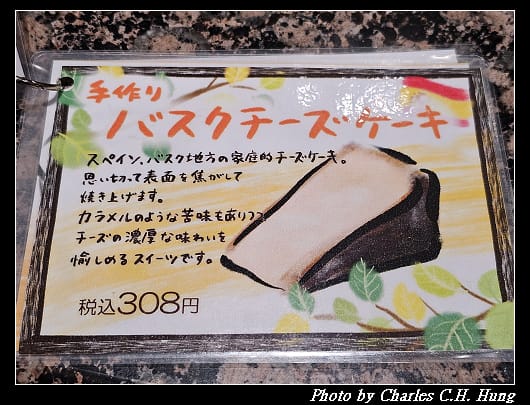 手作り
バスクチーズケーキ
スペイン、バスク地方の家庭的チーズケーキ。
思い切って表面を焦がして
焼き上げます。
カラメルのような苦味もありつつ
チーズの濃厚な味わいを
愉しめるスイーツです。
税込308円
Photo by Charles C.H. Hung